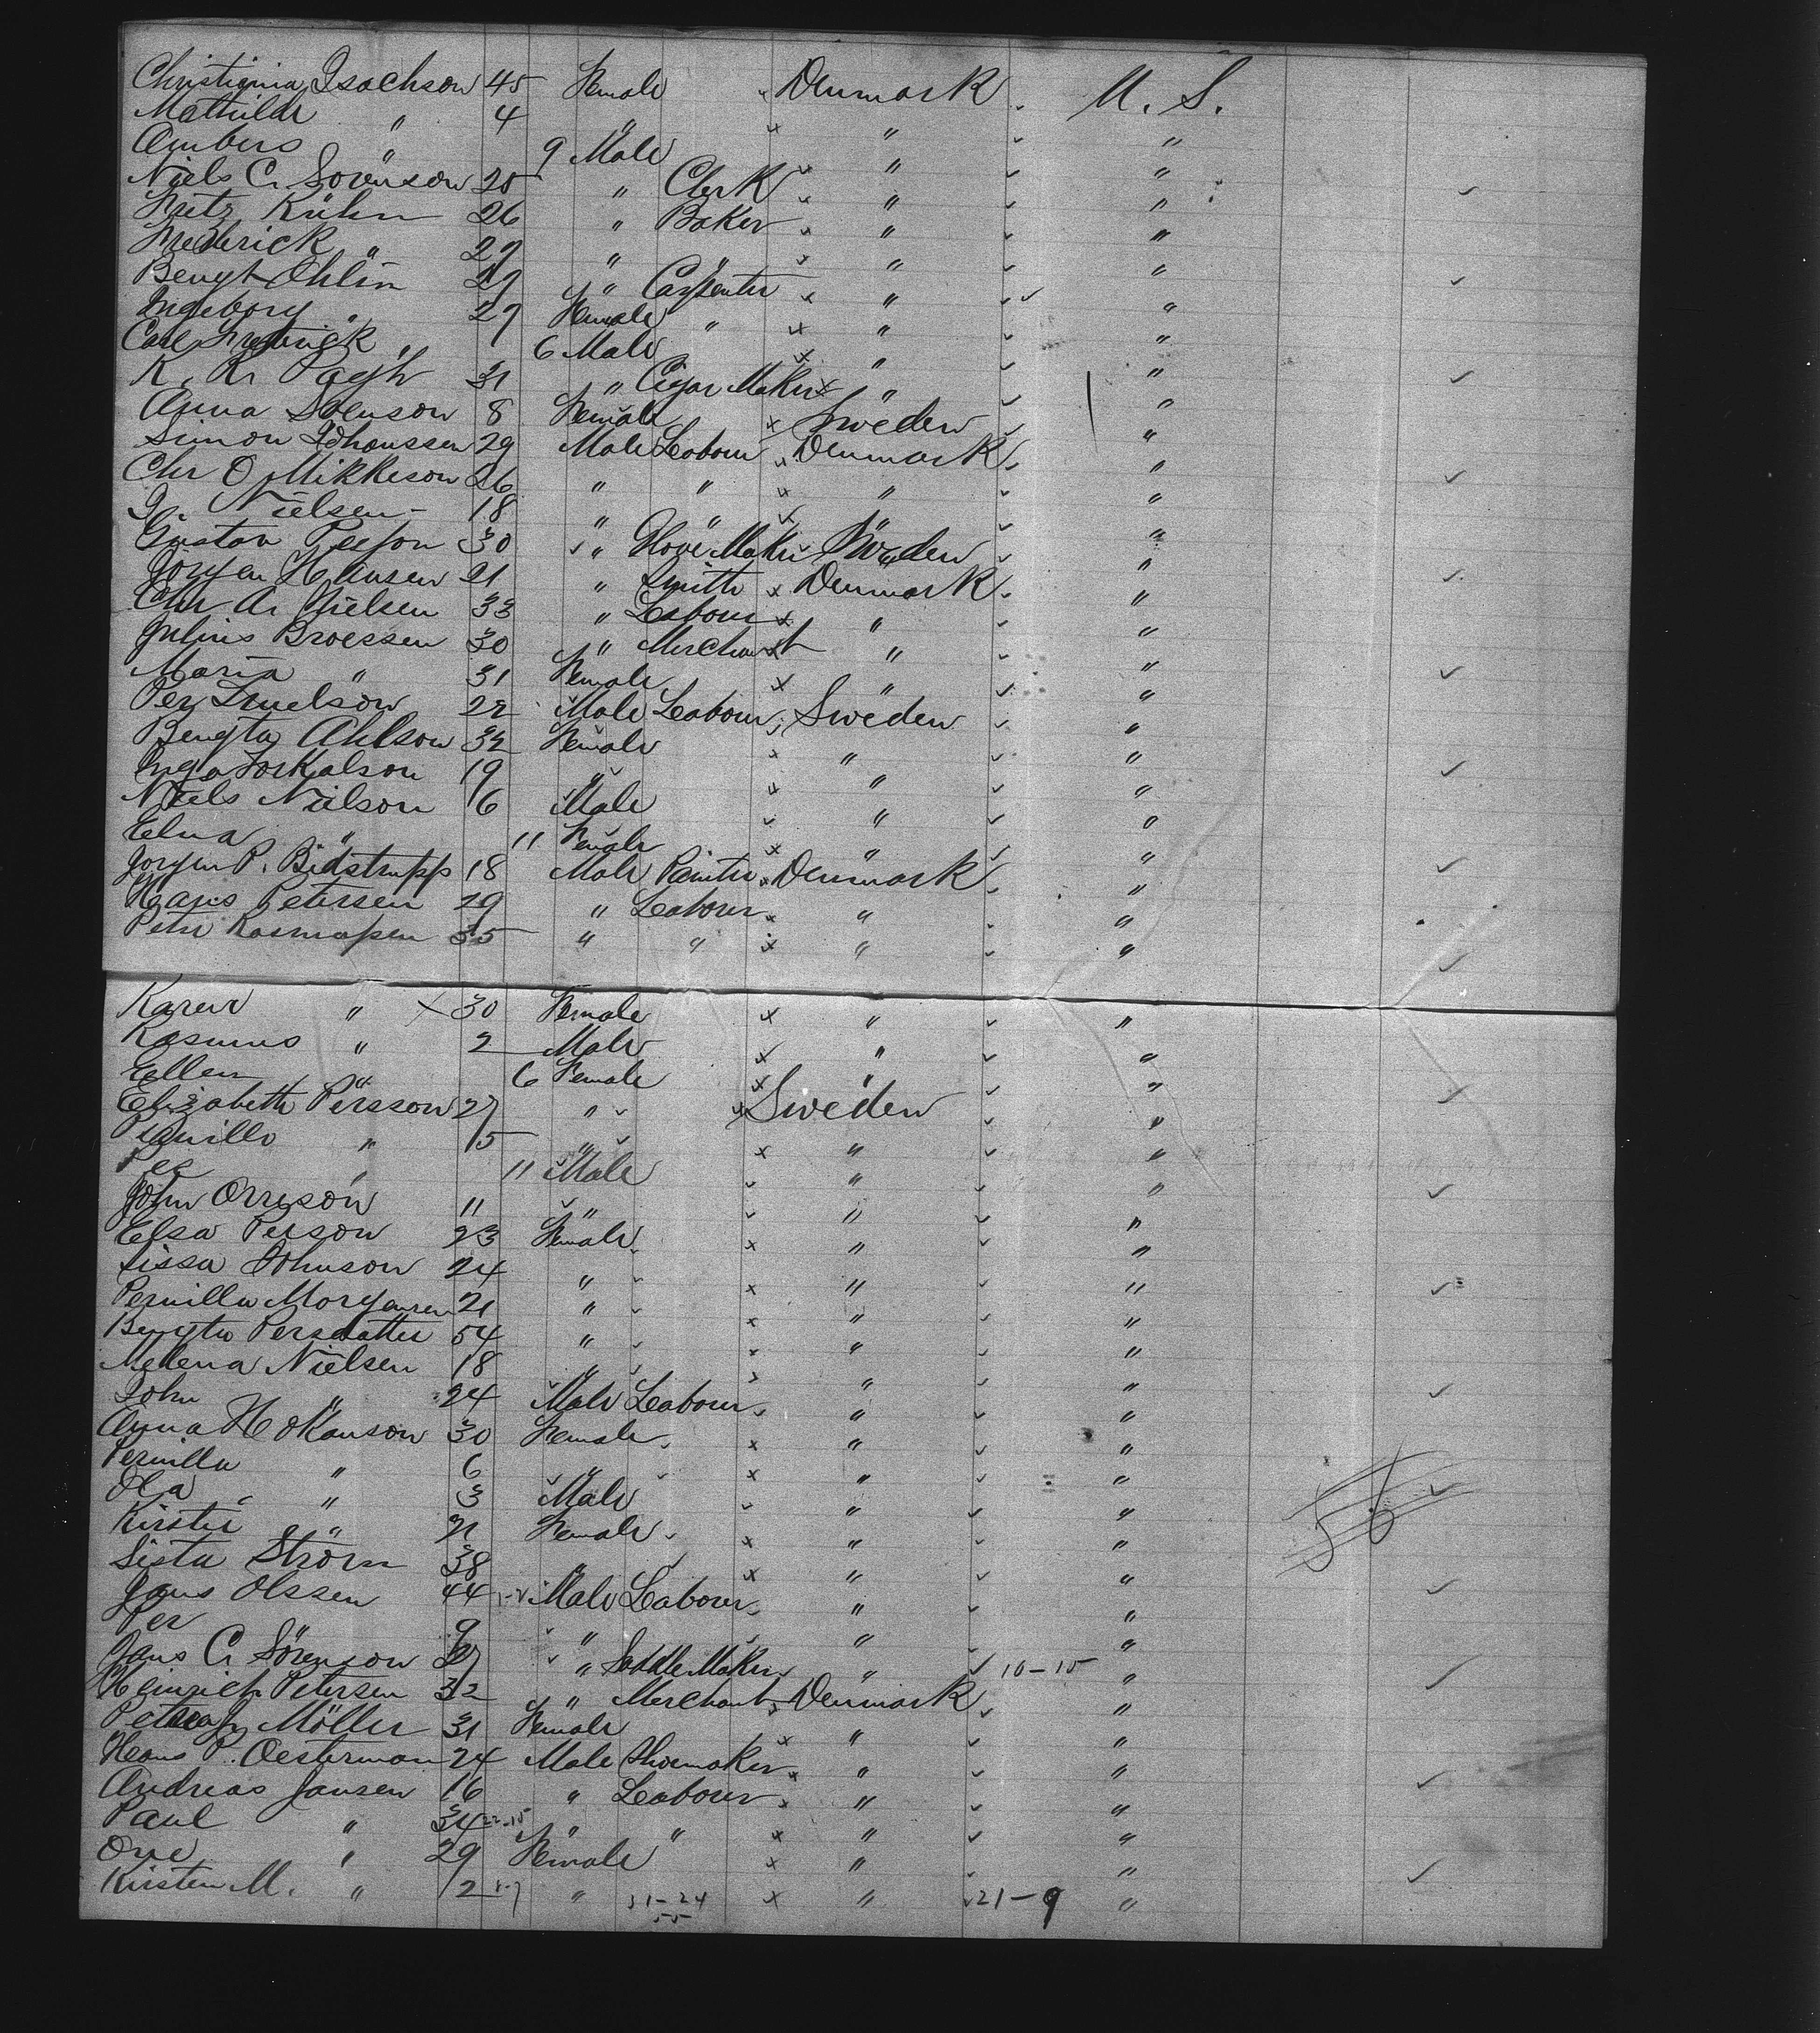 Christiania Isachson 45 Female Denmark U. S.
Mathilde " 4 " " "
Ambers " 9 Male " "
Niels C. Sörenson 25 " Clerk " "
Fritz Kühn 26 " Baker " "
Frederick " 29 " " " "
Bengt Ohlin 29 " Carpenter " "
Ingeborg " 27 Female " " "
Carl Fredrick " 6 Male " "
K. R. Pagh 31 " Cigar Maker " "
Anna Svenson 8 Female Sweden "
Simon Johanssen 29 Male Leabour Denmark "
Chr O. Mikkeson 26 " " " "
J. Nielsen 18 " " " "
Gustav Person 30 " Glove Maker Sweden "
Jörgen Hansen 21 " Smith Denmark "
Chr A. Nielsen 33 " Leabour " "
Julius Broessen 30 " Merchant " "
Maria " 31 Female " "
Per Truelson 22 Male Leabour Sweden "
Bengta Ahlson 32 Female " "
Inga Torkalson 19 " " "
Niels Nielson 16 Male " "
Elna " 11 Female " "
Jorgen P. Bidstrupp 18 Male Painter Denmark "
Hans Petersen 29 " Leabour " "
Peter Rasmussen 35 " " " "
Karen " 30 Female " "
Rasmus " 2 Male " "
Ellen " 6 Female " "
Elizabeth Persson 27 " Sweden "
Pernilla " 15 " " "
Per " 11 Male " "
John Orreson 11 " " "
Elsa Person 23 Female " "
Sissa Johnson 24 " " "
Pernilla Morgensen 21 " " "
Bengta Persdatter 54 " " "
Melena Nielsen 18 " " "
John " 24 Male Leabour " "
Anna Hokanson 30 Female " "
Pernilla " 6 " " "
Ola " 3 Male " "
Kirstie " 21 Female " " 56
Sista Strom 38 " " "
Jons Olssen 44 Male Leabour " "
Per 9 " " "
Jans C. Sörenson 27 " Saddle Maker " 10-15 "
Heinrich Petersen 32 " Merchant Denmark "
Petrea J. Möller 31 Female " "
Hans P. Oesterman 24 Male Shoemaker " "
Andreas Jansen 16 " Leabour " "
Paul " 34 22-15 " " " "
Ove " 29 Female " "
Kirsten M. " 2 " 31-24 " 21-9 "
55